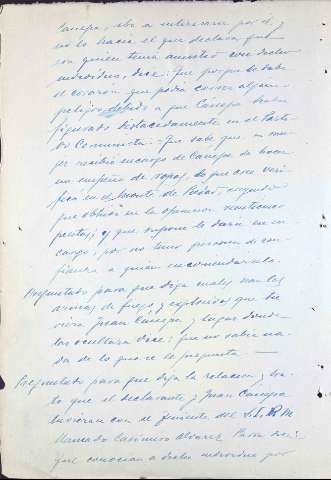 Canepa, iba a interesarse por él y
no lo hacía el que declara, que
era quien tenía amistad con dicho
individuo, dice: Que porque le daba
el corazón que podía correr algun
peligro, debido a que Canepa había
figurado destacadamente en el Parti-
do Comunista.- Que sabe que su mu-
jer recibió encargo de Canepa de hacer
un empeño de ropas, lo que ésta veri-
ficó en el Monte de Piedad, creyendo
que obtuvo en la operación
pesetas; y que supone le daría ese en-
cargo, por no tener persona de con-
fianza a quien encomendarselo.
Preguntado para que diga cuales son las
armas de fuego y explosivos que tu-
viera Juan Cánepa y lugar donde
las ocultara dice: que no sabe na-
da de lo que se le pregunta. —
Preguntado para que diga la relacion y tra-
to que el declarante y Juan Cánepa
tuvieran con el Teniente del
llamado Casimiro Alvarez dice:
que conocían a dicho individuo por